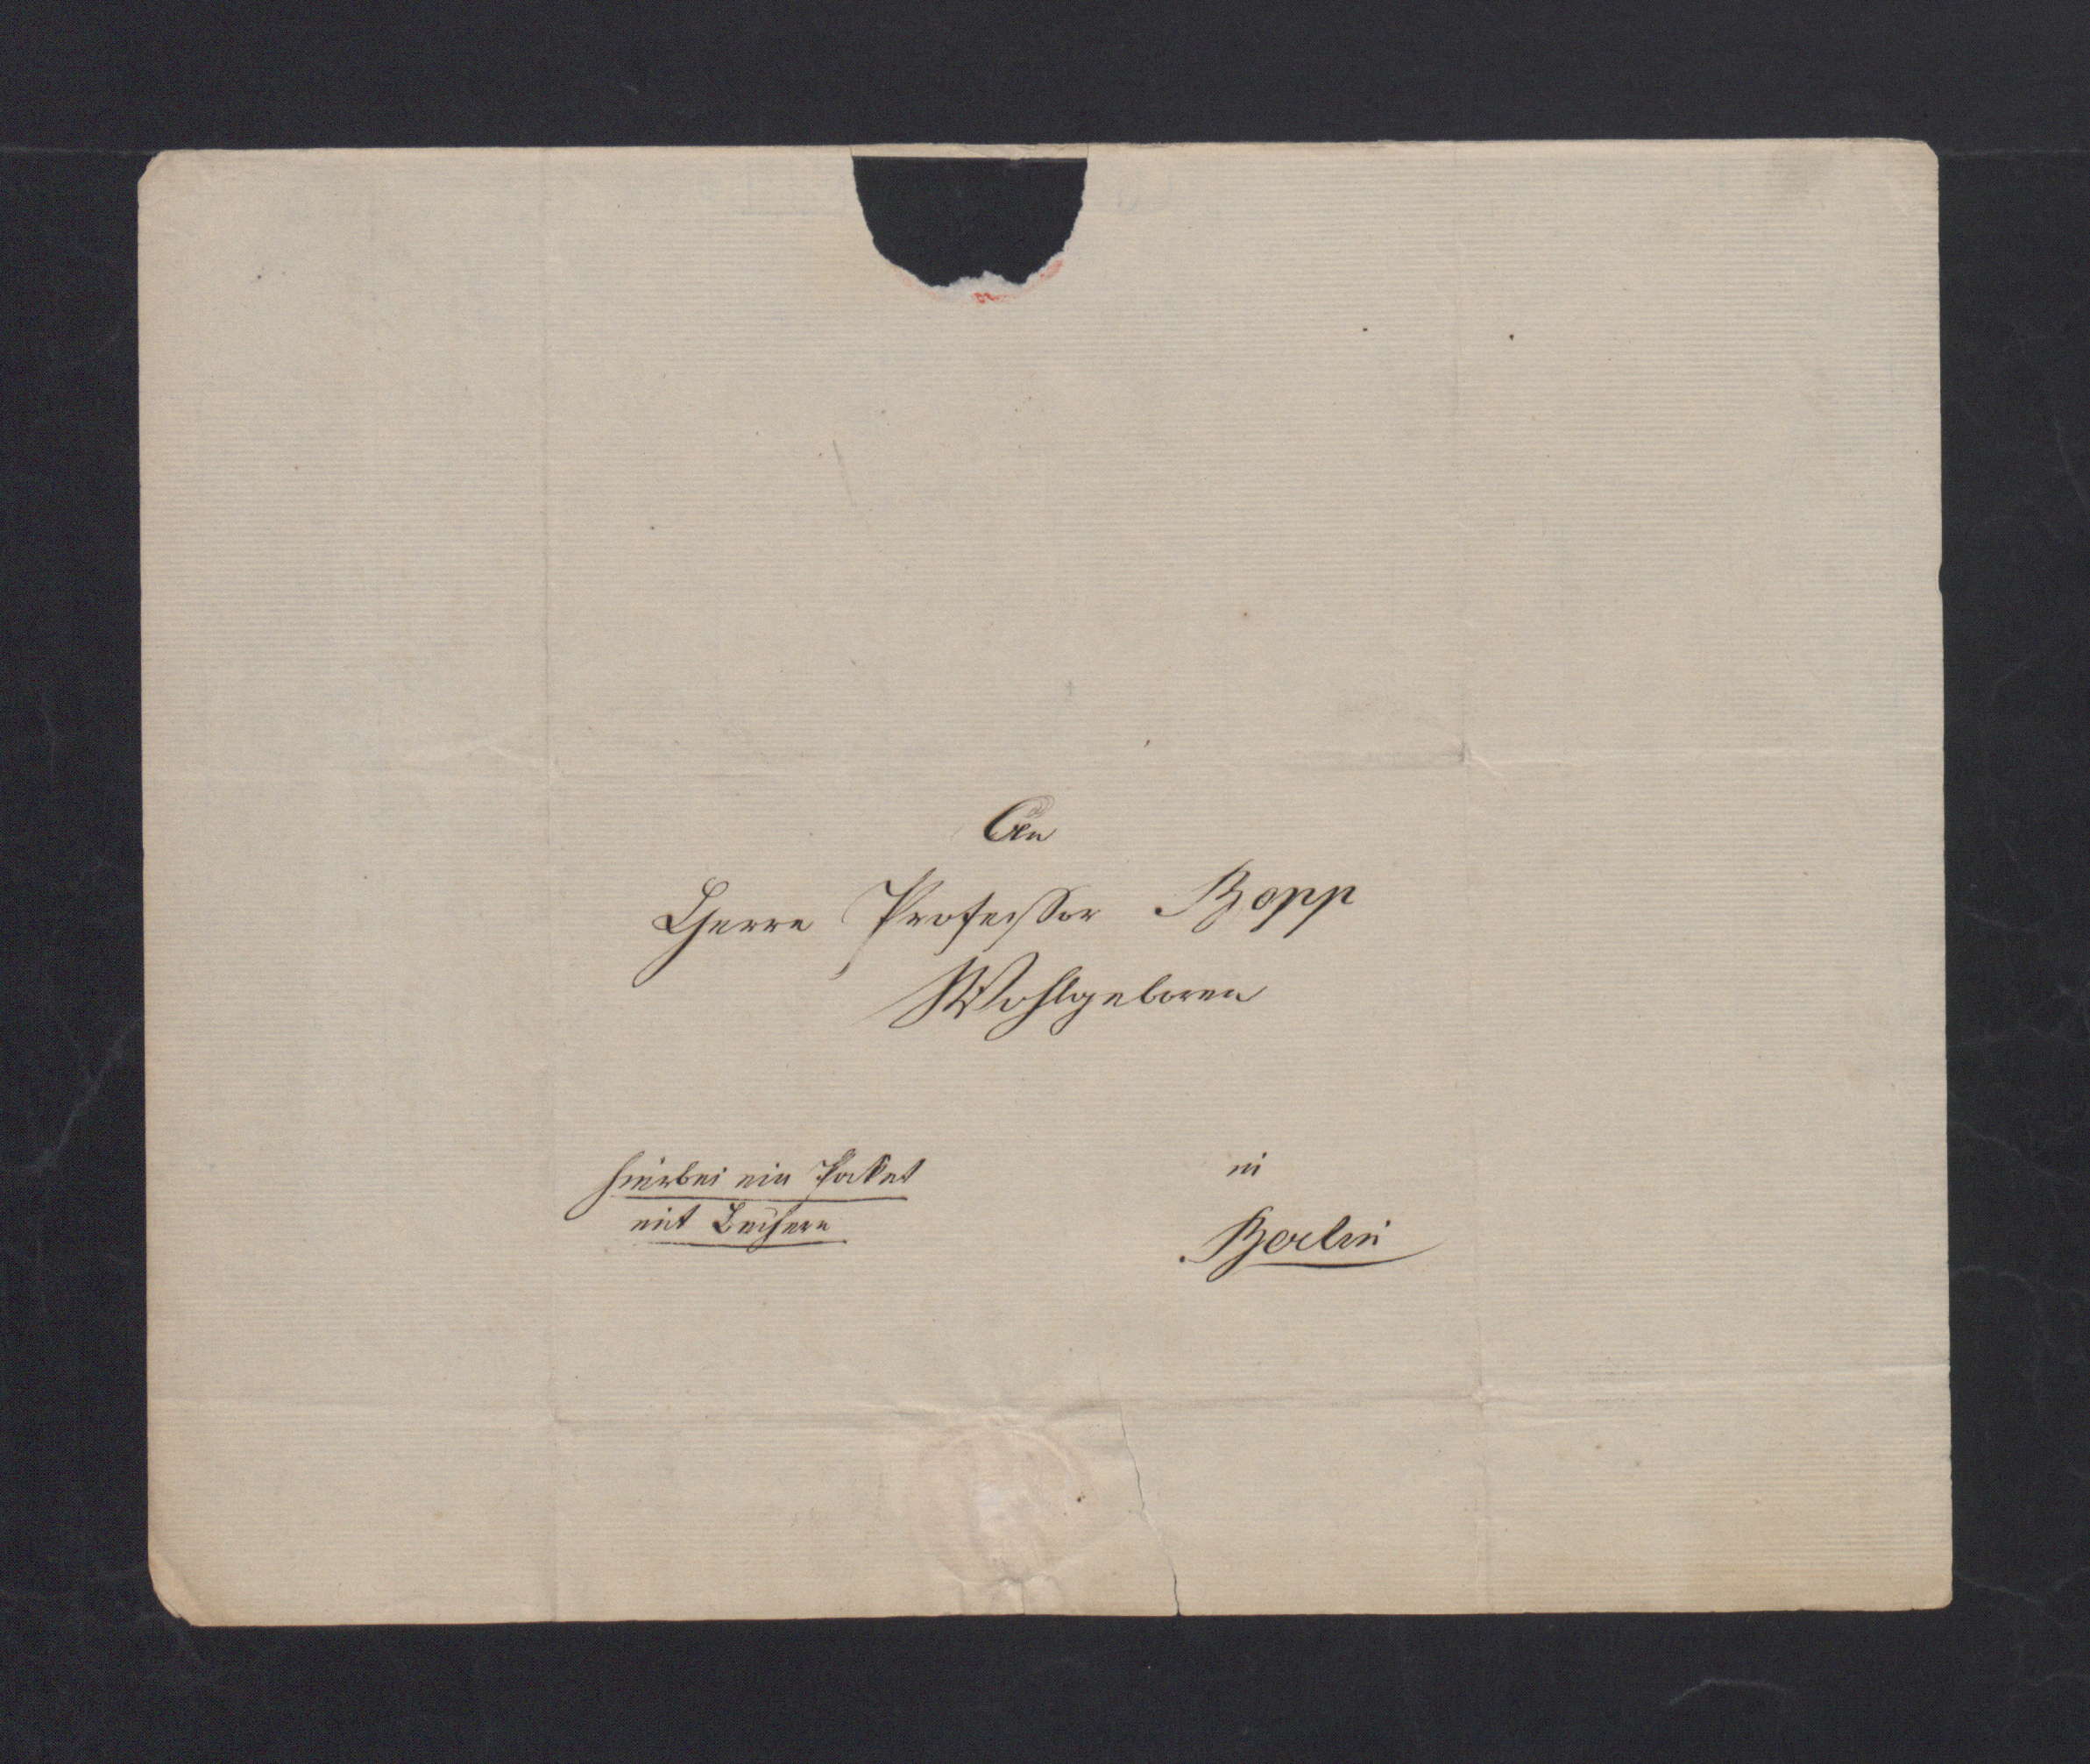 An
Herrn Professor Bopp
Wohlgeboren
hierbei ein Paket
mit Büchern
in
Berlin